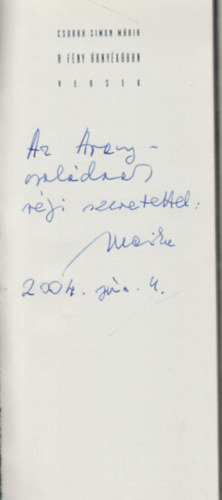 CSORBA SIMON MÁRIA
A FÉNY ÁRNYÉKÁBAN
VERSEK
Az Arany-
családnak
régi szeretettel:
Marika
2004. jún. 4.